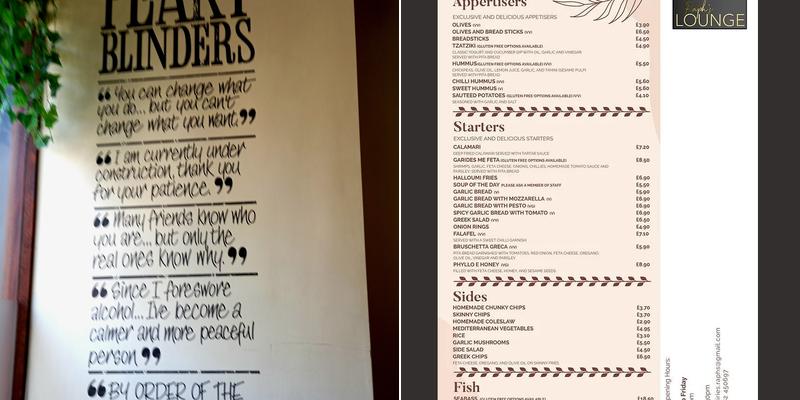 PEAKY
BLINDERS
“You can change what
you do... but you can't
change what you want.”
“I am currently under
construction, thank you
for your patience.”
“Many friends know who
you are... but only the
real ones know why.”
“Since I foreswore
alcohol... I've become a
calmer and more peaceful
person”
“BY ORDER OF THE
Appertisers
EXCLUSIVE AND DELICIOUS APPETISERS
OLIVES (VV) £3.90
OLIVES AND BREAD STICKS (VV) £6.50
BREADSTICKS £4.50
TZATZIKI (GLUTEN FREE OPTIONS AVAILABLE) £4.90
CLASSIC YOGURT AND CUCUMBER DIP WITH OIL, GARLIC AND VINEGAR
SERVED WITH PITA BREAD
HUMMUS (GLUTEN FREE OPTIONS AVAILABLE) (VV) £5.50
CHICKPEAS, OLIVE OIL, LEMON JUICE, GARLIC, AND TAHINI (SESAME PULP)
SERVED WITH PITA BREAD
CHILLI HUMMUS (VV) £5.60
SWEET HUMMUS (V) £5.60
SAUTEED POTATOES (GLUTEN FREE OPTIONS AVAILABLE) (VV) £4.10
SEASONED WITH GARLIC AND SALT
Starters
EXCLUSIVE AND DELICIOUS STARTERS
CALAMARI £7.20
DEEP FRIED CALAMARI SERVED WITH TARTAR SAUCE
GARIDES ME FETA (GLUTEN FREE OPTIONS AVAILABLE) £8.50
SHRIMPS, GARLIC, FETA CHEESE, ONIONS, CHILLIES, HOMEMADE TOMATO SAUCE AND
PARSLEY. SERVED WITH PITA BREAD
HALLOUMI FRIES £6.90
SOUP OF THE DAY PLEASE ASK A MEMBER OF STAFF £5.50
GARLIC BREAD (V) £5.90
GARLIC BREAD WITH MOZZARELLA (V) £6.90
GARLIC BREAD WITH PESTO (VG) £6.90
SPICY GARLIC BREAD WITH TOMATO (V) £6.90
GREEK SALAD (V) £6.50
ONION RINGS £4.90
FALAFEL (VV) £7.10
SERVED WITH A SWEET CHILLI GARNISH
BRUSCHETTA GRECA (VV) £5.90
PITA BREAD GARNISHED WITH TOMATOES, RED ONION, FETA CHEESE, OREGANO,
OLIVE OIL, VINEGAR AND PARSLEY
PHYLLO E HONEY (VG) £8.90
FILLED WITH FETA CHEESE, HONEY, AND SESAME SEEDS
Sides
HOMEMADE CHUNKY CHIPS £3.70
SKINNY CHIPS £3.70
HOMEMADE COLESLAW £2.90
MEDITERRANEAN VEGETABLES £4.95
RICE £3.10
GARLIC MUSHROOMS £5.50
SIDE SALAD £4.50
GREEK CHIPS £6.50
FETA CHEESE, OREGANO, AND OLIVE OIL OR SKINNY FRIES
Fish
SEABASS (GLUTEN FREE OPTIONS AVAILABLE) £18.50
Raph's
LOUNGE
pening Hours:
Friday